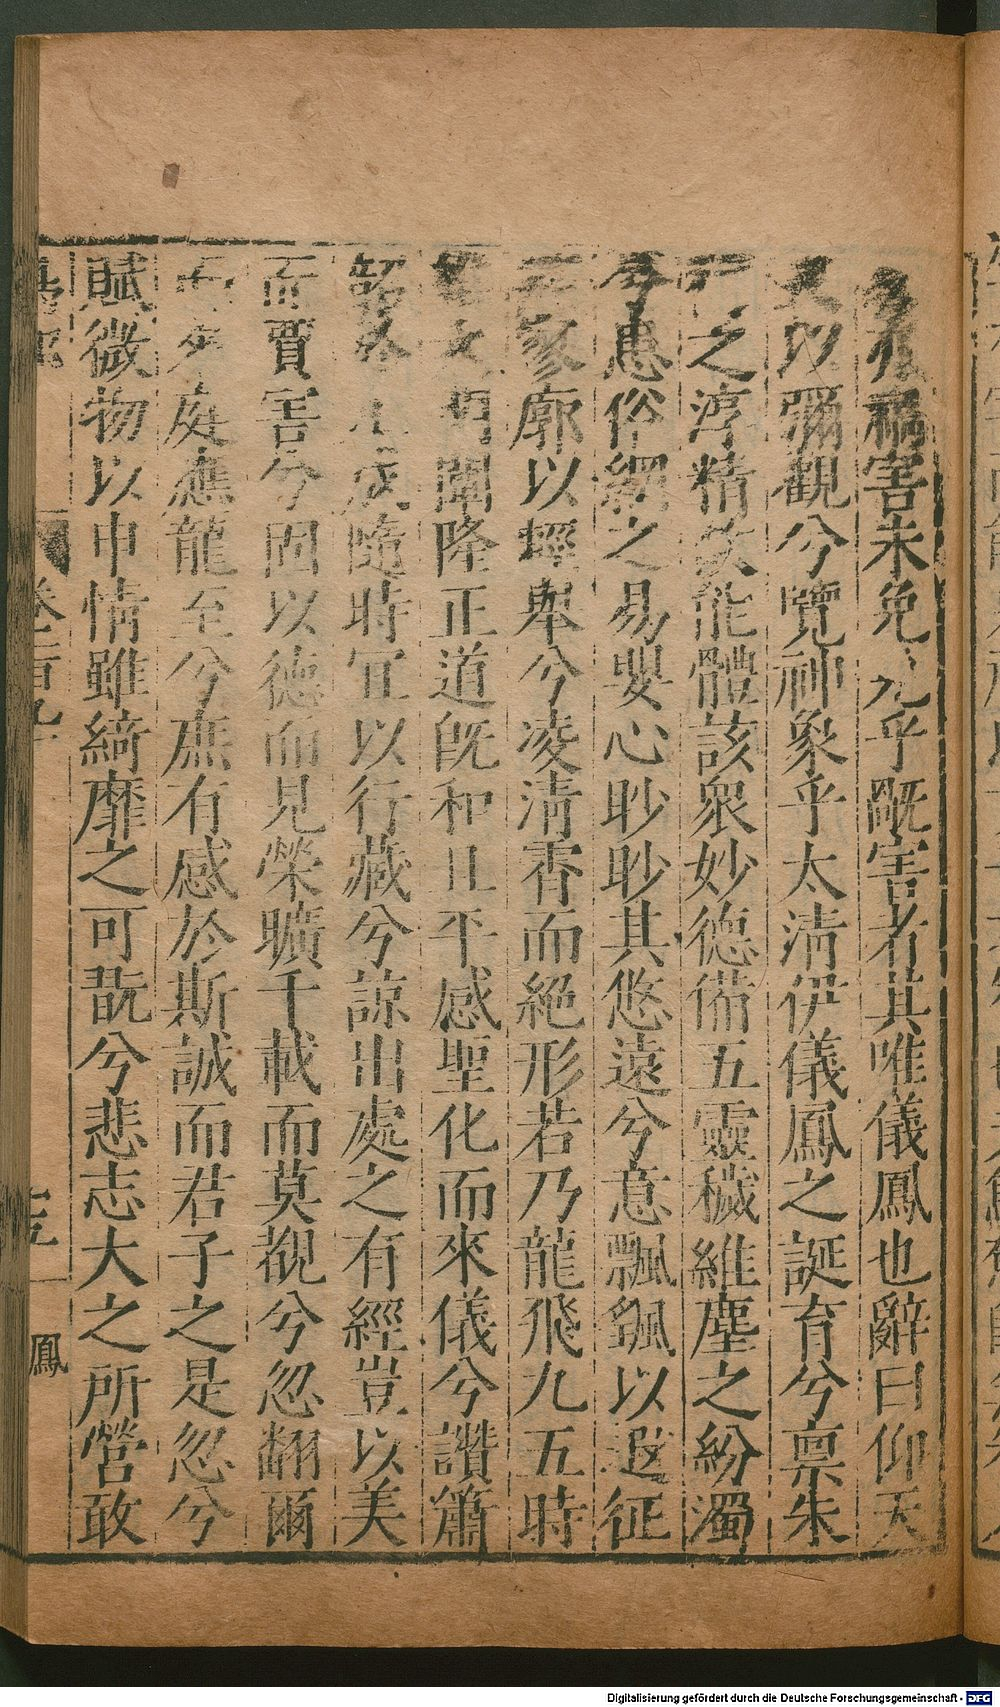 禍害未免乎敺害者其唯儀鳳也辭曰仰天
以彌觀兮覽神象乎太淸伊儀鳳之誕育兮禀朱
之淳精能體該衆妙德備五靈穢維塵之紛濁
兮患俗網之易嬰心眇眇其悠遠兮意飄飖以遐征
寥廓以輕舉兮凌淸霄而絕形若乃龍飛九五時
闡隆正道旣和且平感聖化而來儀兮讚簫
韶隨時宜以行藏兮諒出處之有經豈以美
而賈害兮固以德而見榮曠千載而莫覩兮忽翻爾
庭應龍至兮庶有感於斯誠而君子之是忽兮
賦微物以申情雖綺靡之可翫兮悲志大之所營敢
鳳
Digitalisierung gefördert durch die Deutsche Forschungsgemeinschaft - DFG